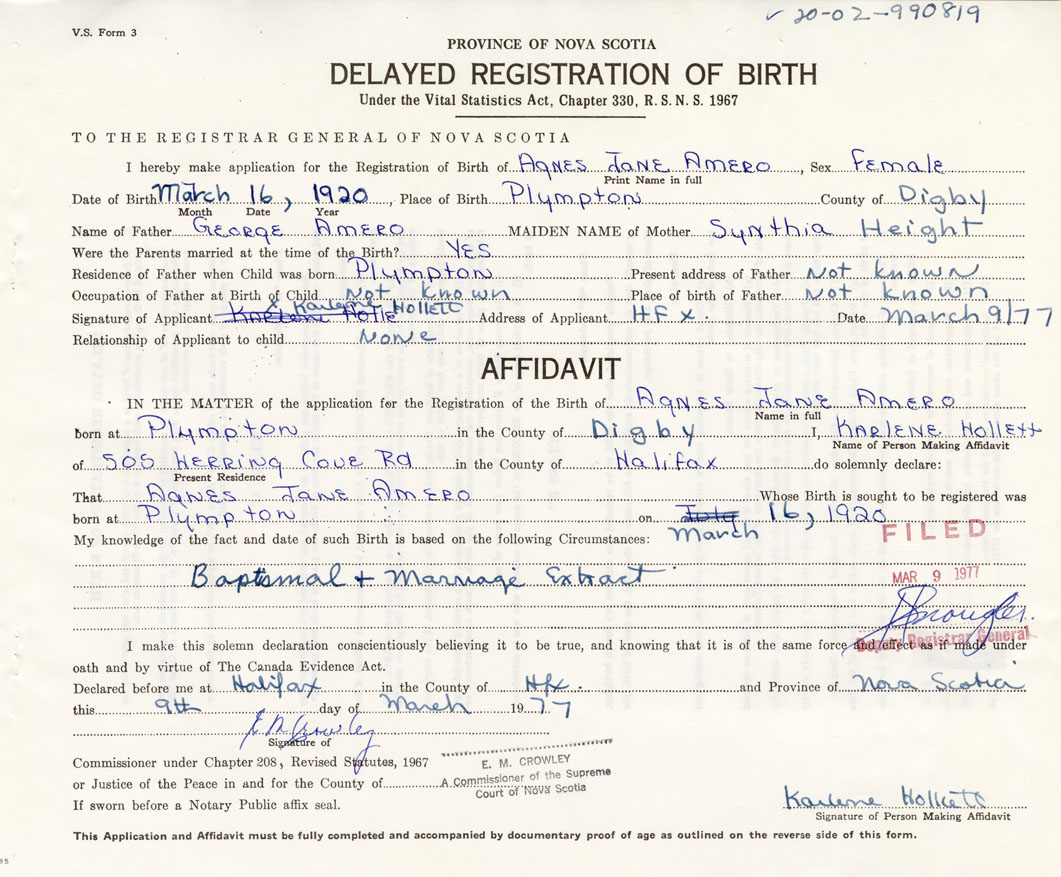 ✓ 20-02-990819
V.S. Form 3
PROVINCE OF NOVA SCOTIA
DELAYED REGISTRATION OF BIRTH
Under the Vital Statistics Act, Chapter 330, R. S. N. S. 1967
TO THE REGISTRAR GENERAL OF NOVA SCOTIA
I hereby make application for the Registration of Birth of AGNES JANE AMERO, Sex Female
Print Name in full
Date of Birth March 16, 1920, Place of Birth Plympton County of Digby
Month Date Year
Name of Father GEORGE AMERO MAIDEN NAME of Mother Synthia Height
Were the Parents married at the time of the Birth? YES
Residence of Father when Child was born Plympton Present address of Father Not Known
Occupation of Father at Birth of Child Not Known Place of birth of Father Not Known
x Karlene Hollett
Signature of Applicant Address of Applicant HFx. Date March 9/77
Relationship of Applicant to child None
AFFIDAVIT
IN THE MATTER of the application for the Registration of the Birth of AGNES JANE AMERO
Name in full
born at Plympton in the County of Digby I, KARLENE HOLLETT
Name of Person Making Affidavit
of 505 HERRING COVE Rd in the County of Halifax do solemnly declare:
Present Residence
That AGNES JANE AMERO Whose Birth is sought to be registered was
born at Plympton on July 16, 1920
My knowledge of the fact and date of such Birth is based on the following Circumstances: March
FILED
Baptismal + Marriage Extract
MAR 9 1977
Deputy Registrar General
I make this solemn declaration conscientiously believing it to be true, and knowing that it is of the same force and effect as if made under
oath and by virtue of The Canada Evidence Act.
Declared before me at Halifax in the County of Hfx. and Province of Nova Scotia
this 9th day of March 1977
E M Crowley
Signature of
Commissioner under Chapter 208, Revised Statutes, 1967
E. M. CROWLEY
or Justice of the Peace in and for the County of
A Commissioner of the Supreme
Court of Nova Scotia
If sworn before a Notary Public affix seal.
Karlene Hollett
Signature of Person Making Affidavit
This Application and Affidavit must be fully completed and accompanied by documentary proof of age as outlined on the reverse side of this form.